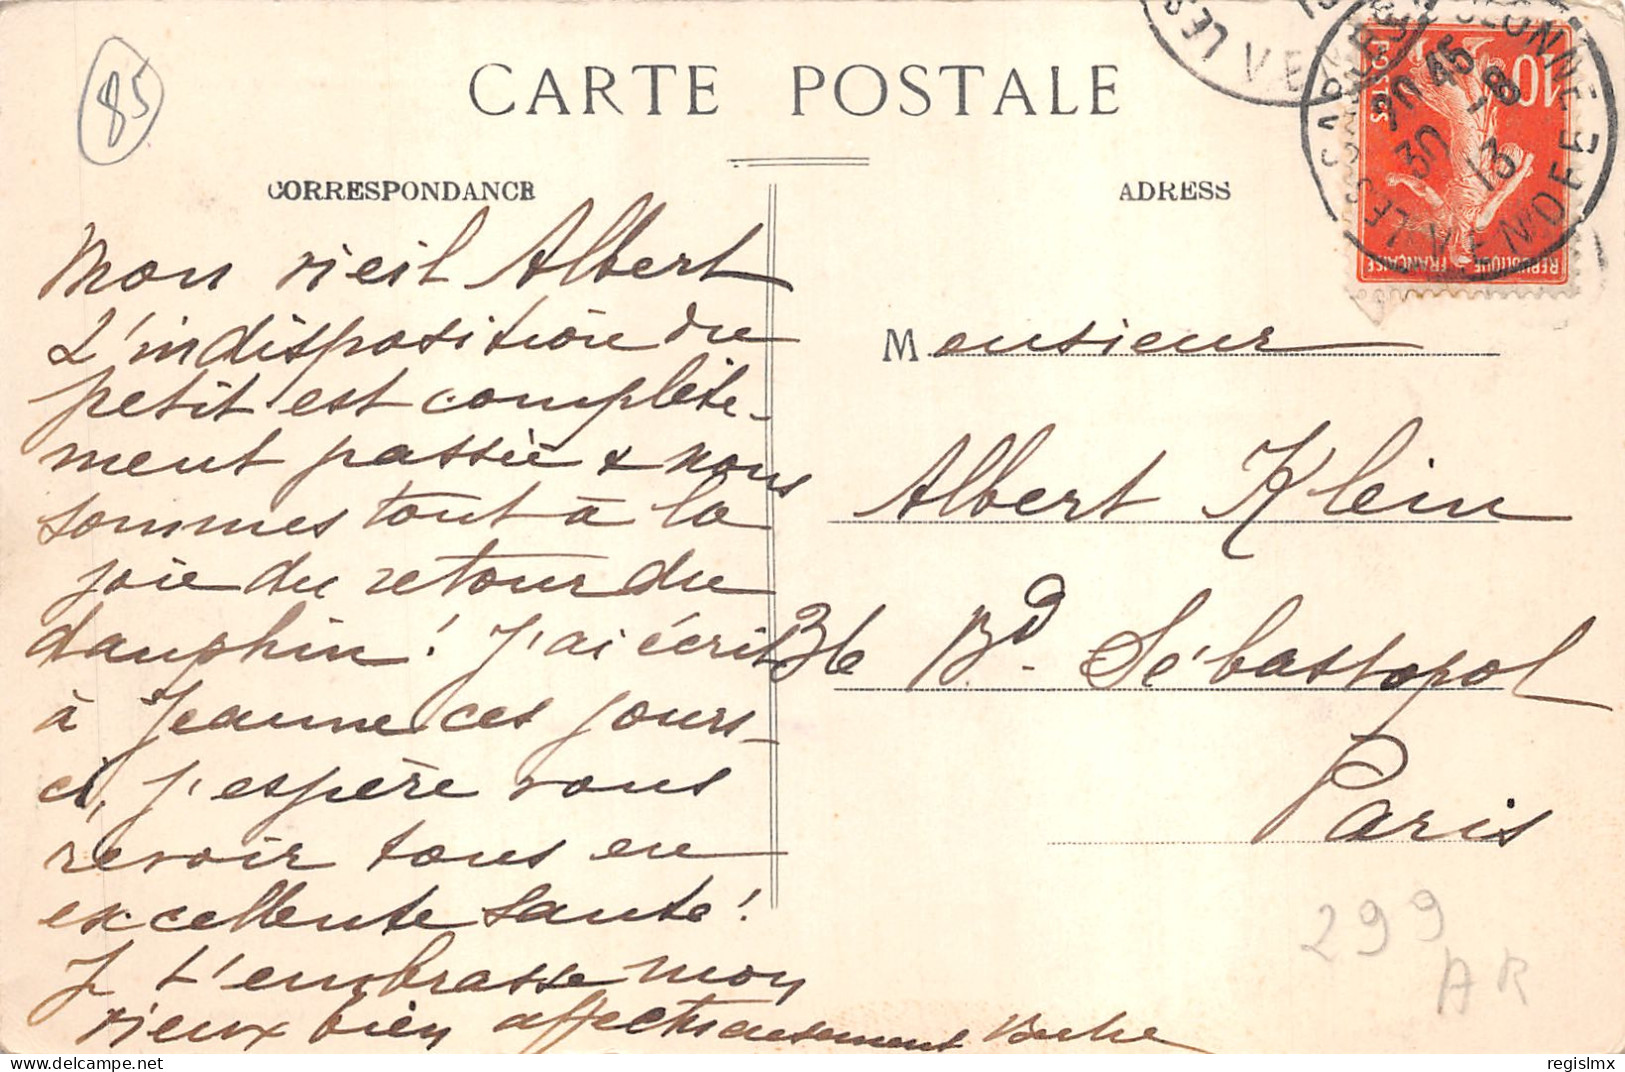 85
CARTE POSTALE
CORRESPONDANCE
ADRESS
Mon vieil Albert
L'indisposition du
petit est complète-
ment passée & nous
sommes tout à la
joie du retour du
dauphin ! J'ai écrit
à Jeanne ces jours-
ci, j'espère vous
revoir tous en
excellente santé !
J t'embrasse mon
vieux bien affectueusement
Monsieur
Albert Klein
36 Bd Sébastopol
Paris
299
AR
LES SABLES D'OLONNE
20 45
30 -8
13
VENDEE
LES
VE
10
POSTES
REPUBLIQUE FRANÇAISE
regislmx